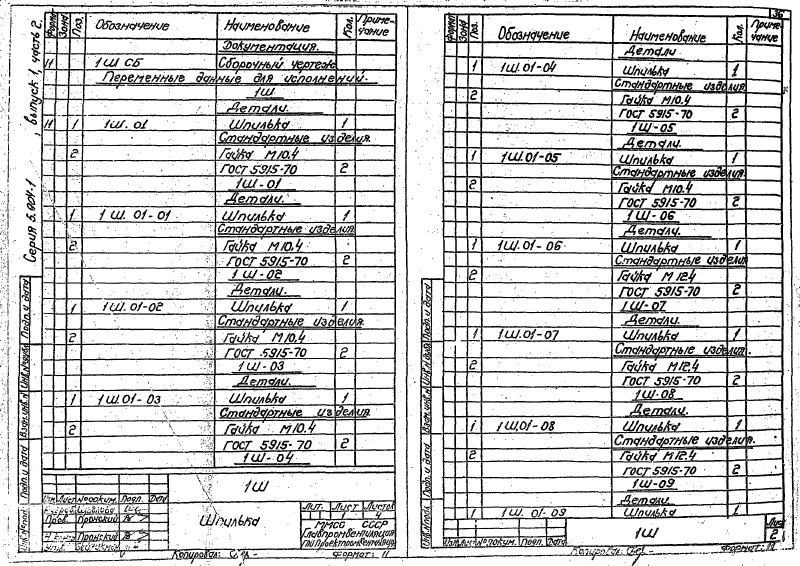 Серия 5.904-1, выпуск 1, часть 2.
Формат Зона Поз. Обозначение Наименование Кол. Примечание
Документация.
11 1Ш СБ Сборочный чертеж
Переменные данные для исполнений.
1Ш
Детали.
11 1 1Ш. 01 Шпилька 1
Стандартные изделия.
2 Гайка М10.4
ГОСТ 5915-70 2
1Ш-01
Детали.
1 1Ш. 01-01 Шпилька 1
Стандартные изделия
2 Гайка М10.4
ГОСТ 5915-70 2
1Ш-02
Детали.
1 1Ш.01-02 Шпилька 1
Стандартные изделия.
2 Гайка М10.4
ГОСТ 5915-70 2
1Ш-03
Детали.
1 1Ш.01-03 Шпилька 1
Стандартные изделия.
2 Гайка М10.4
ГОСТ 5915-70 2
1Ш-04
Подп. и дата
Взам. инв. №
Подп. и дата
Изм. Лист № докум. Подп. Дата
Пров. Пронский
Пронский
1Ш
Шпилька
Лит. Лист Листов
1 4
ММСС СССР
Главпромвентиляция
Копировал: Формат: 11
36
Формат Зона Поз. Обозначение Наименование Кол. Примечание
Детали
1 1Ш.01-04 Шпилька 1
Стандартные изделия
2 Гайка М10.4
ГОСТ 5915-70 2
1Ш-05
Детали.
1 1Ш.01-05 Шпилька 1
Стандартные изделия.
2 Гайка М10.4
ГОСТ 5915-70 2
1Ш-06
Детали.
1 1Ш.01-06 Шпилька 1
Стандартные изделия.
2 Гайка М12.4
ГОСТ 5915-70 2
1Ш-07
Детали.
1 1Ш.01-07 Шпилька 1
Стандартные изделия
2 Гайка М12.4
ГОСТ 5915-70 2
1Ш-08
Детали.
1 1Ш.01-08 Шпилька 1
Стандартные изделия.
2 Гайка М12.4
ГОСТ 5915-70 2
1Ш-09
Детали
1 1Ш.01-09 Шпилька 1
Подп. и дата
Взам. инв. №
Подп. и дата
Изм. Лист № докум. Подп. Дата
1Ш
Лист
2
Копировал: Формат: 11